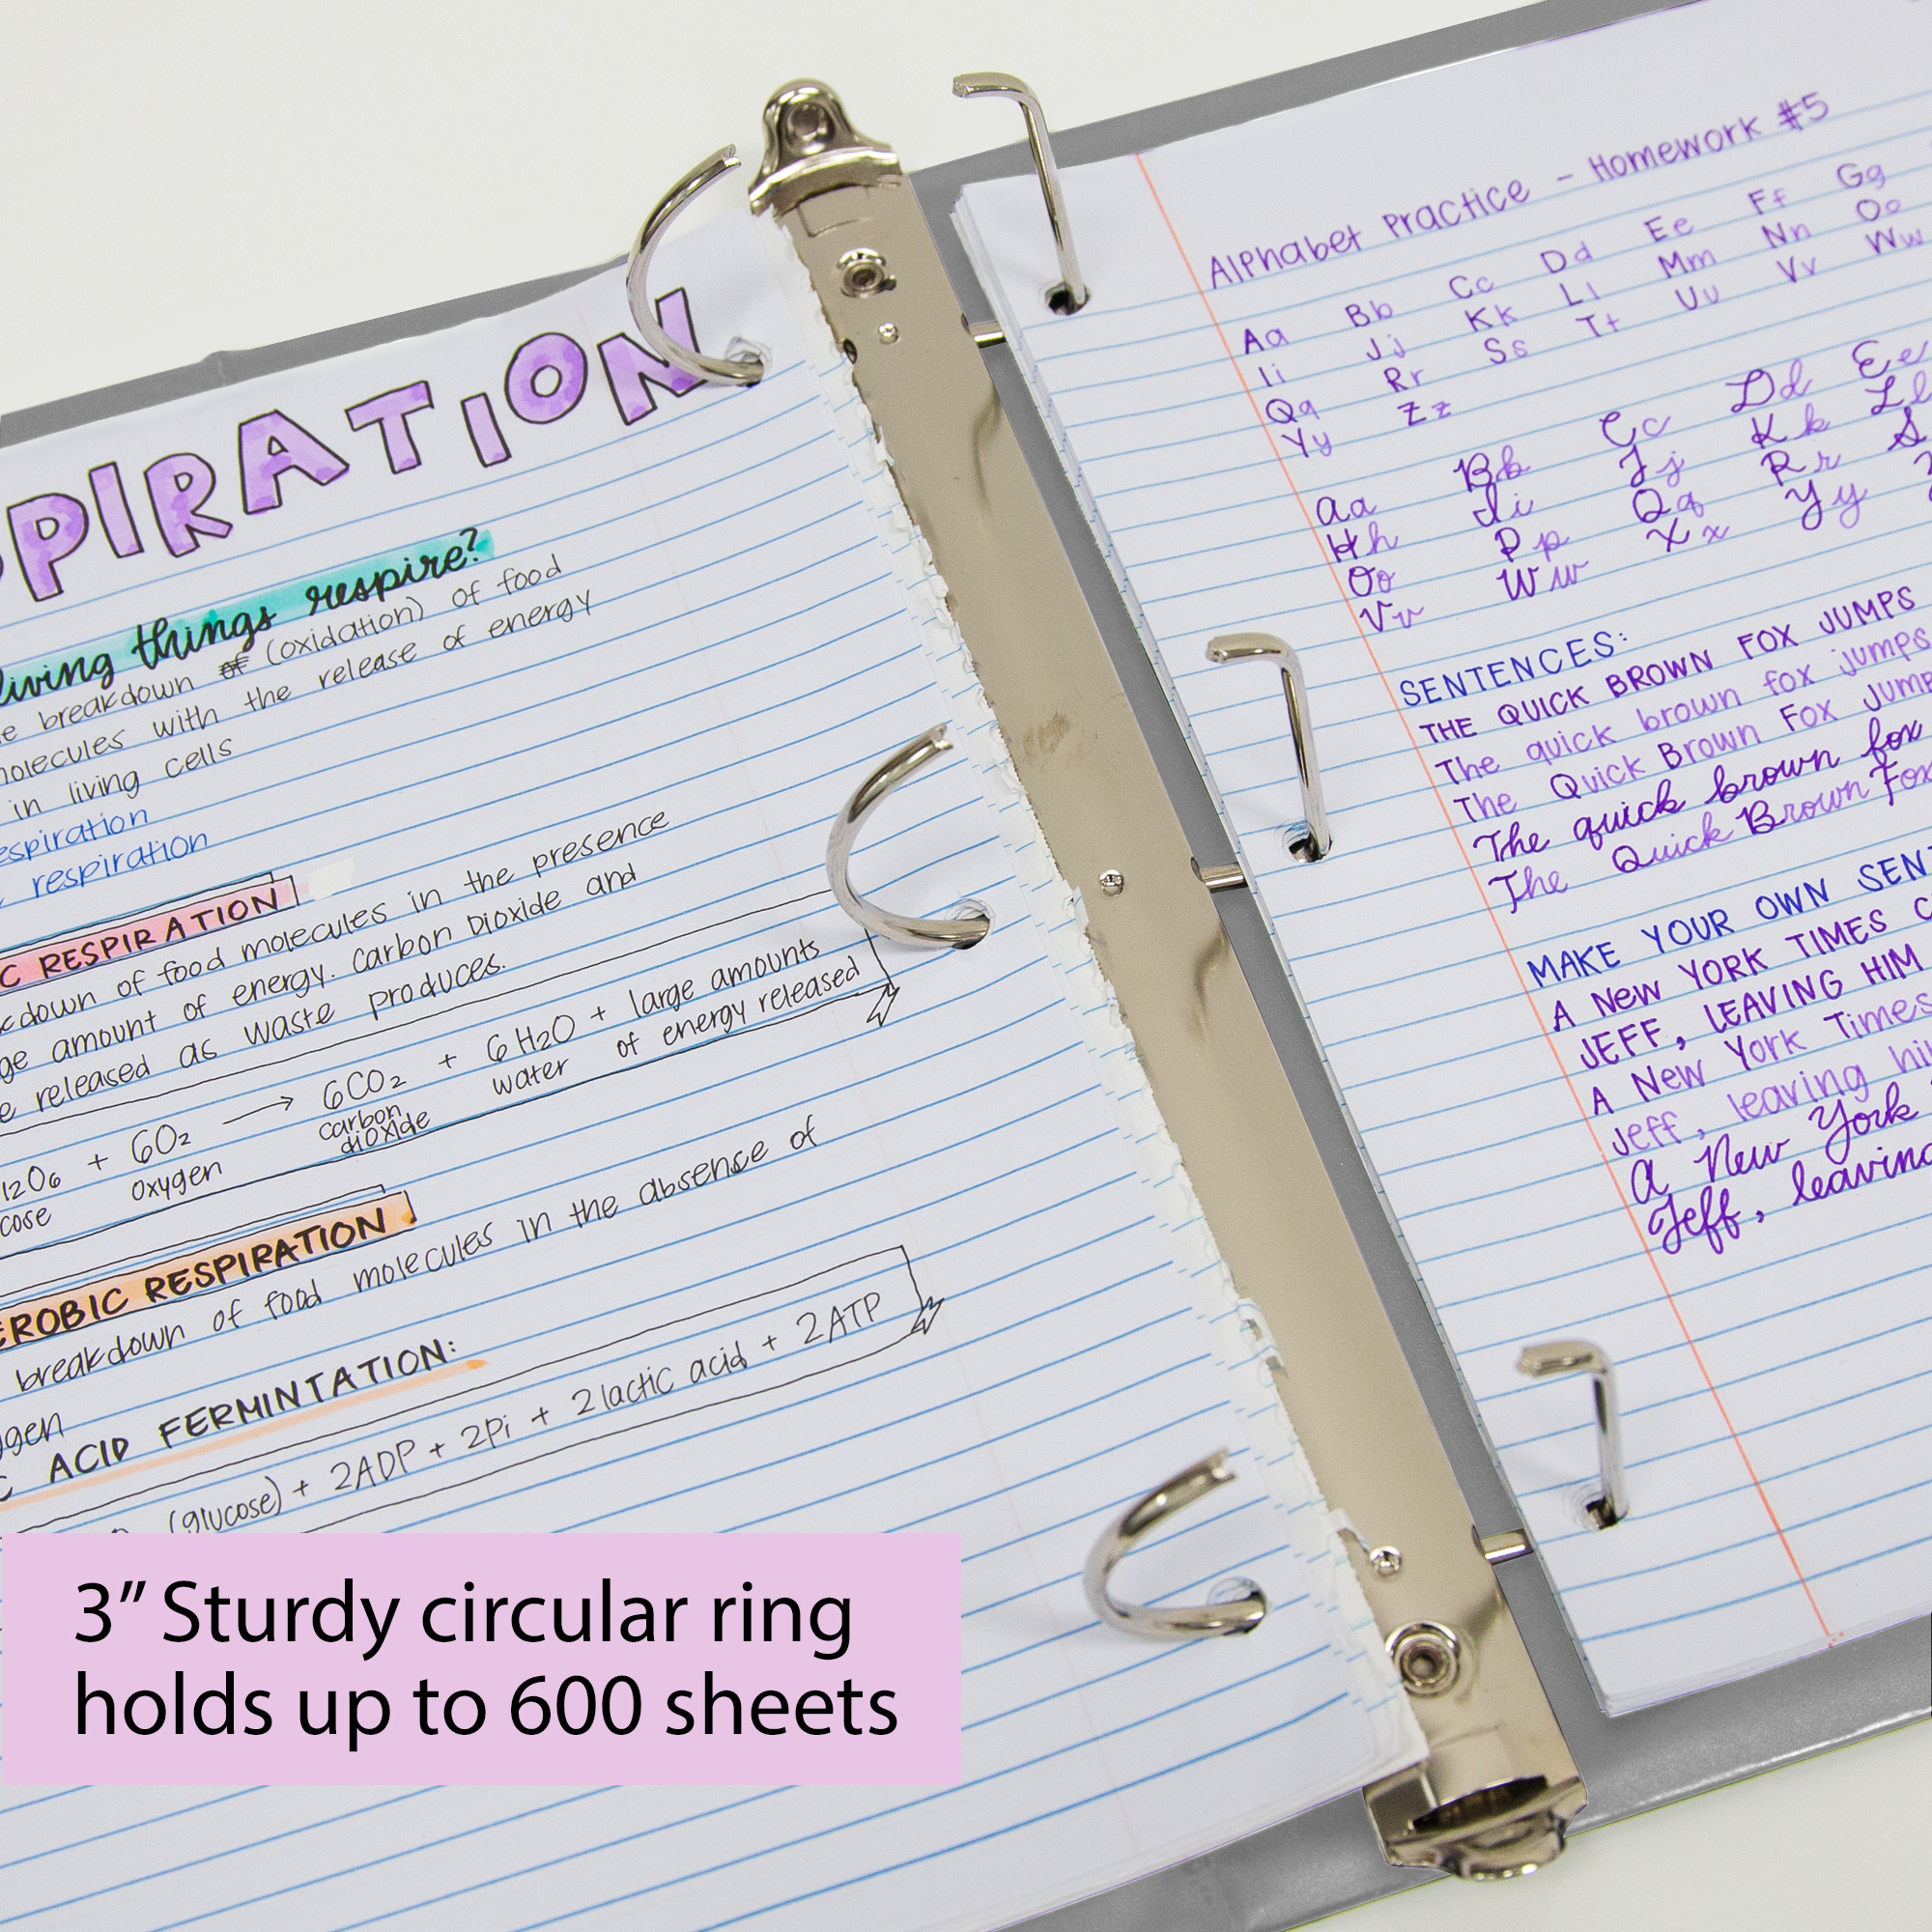 PIRATION
living things respire?
breakdown of (oxidation) of food
molecules with the release of energy
in living cells
respiration
respiration
C RESPIRATION
down of food molecules in the presence
amount of energy. Carbon Dioxide and
released as waste produces.
12O6 + 6O2 → 6CO2 + 6H2O + large amounts
oxygen carbon dioxide water of energy released
EROBIC RESPIRATION
breakdown of food molecules in the absence of
C ACID FERMINTATION:
(glucose) + 2ADP + 2Pi + 2 lactic acid + 2ATP
Alphabet Practice - Homework #5
Aa Bb Cc Dd Ee Ff Gg
Ii Jj Kk Ll Mm Nn Oo
Qq Rr Ss Tt Uu Vv Ww
Yy Zz
Aa Bb Cc Dd Ee
Hh Ii Jj Kk Ll
Oo Pp Qq Rr S
Vv Ww Xx Yy
SENTENCES:
THE QUICK BROWN FOX JUMPS
The quick brown fox jumps
The Quick Brown Fox Jump
The quick brown fox
The Quick Brown Fox
MAKE YOUR OWN SENT
A NEW YORK TIMES C
JEFF, LEAVING HIM
A New York Times
Jeff, leaving hi
A New York
Jeff, leaving
3" Sturdy circular ring
holds up to 600 sheets